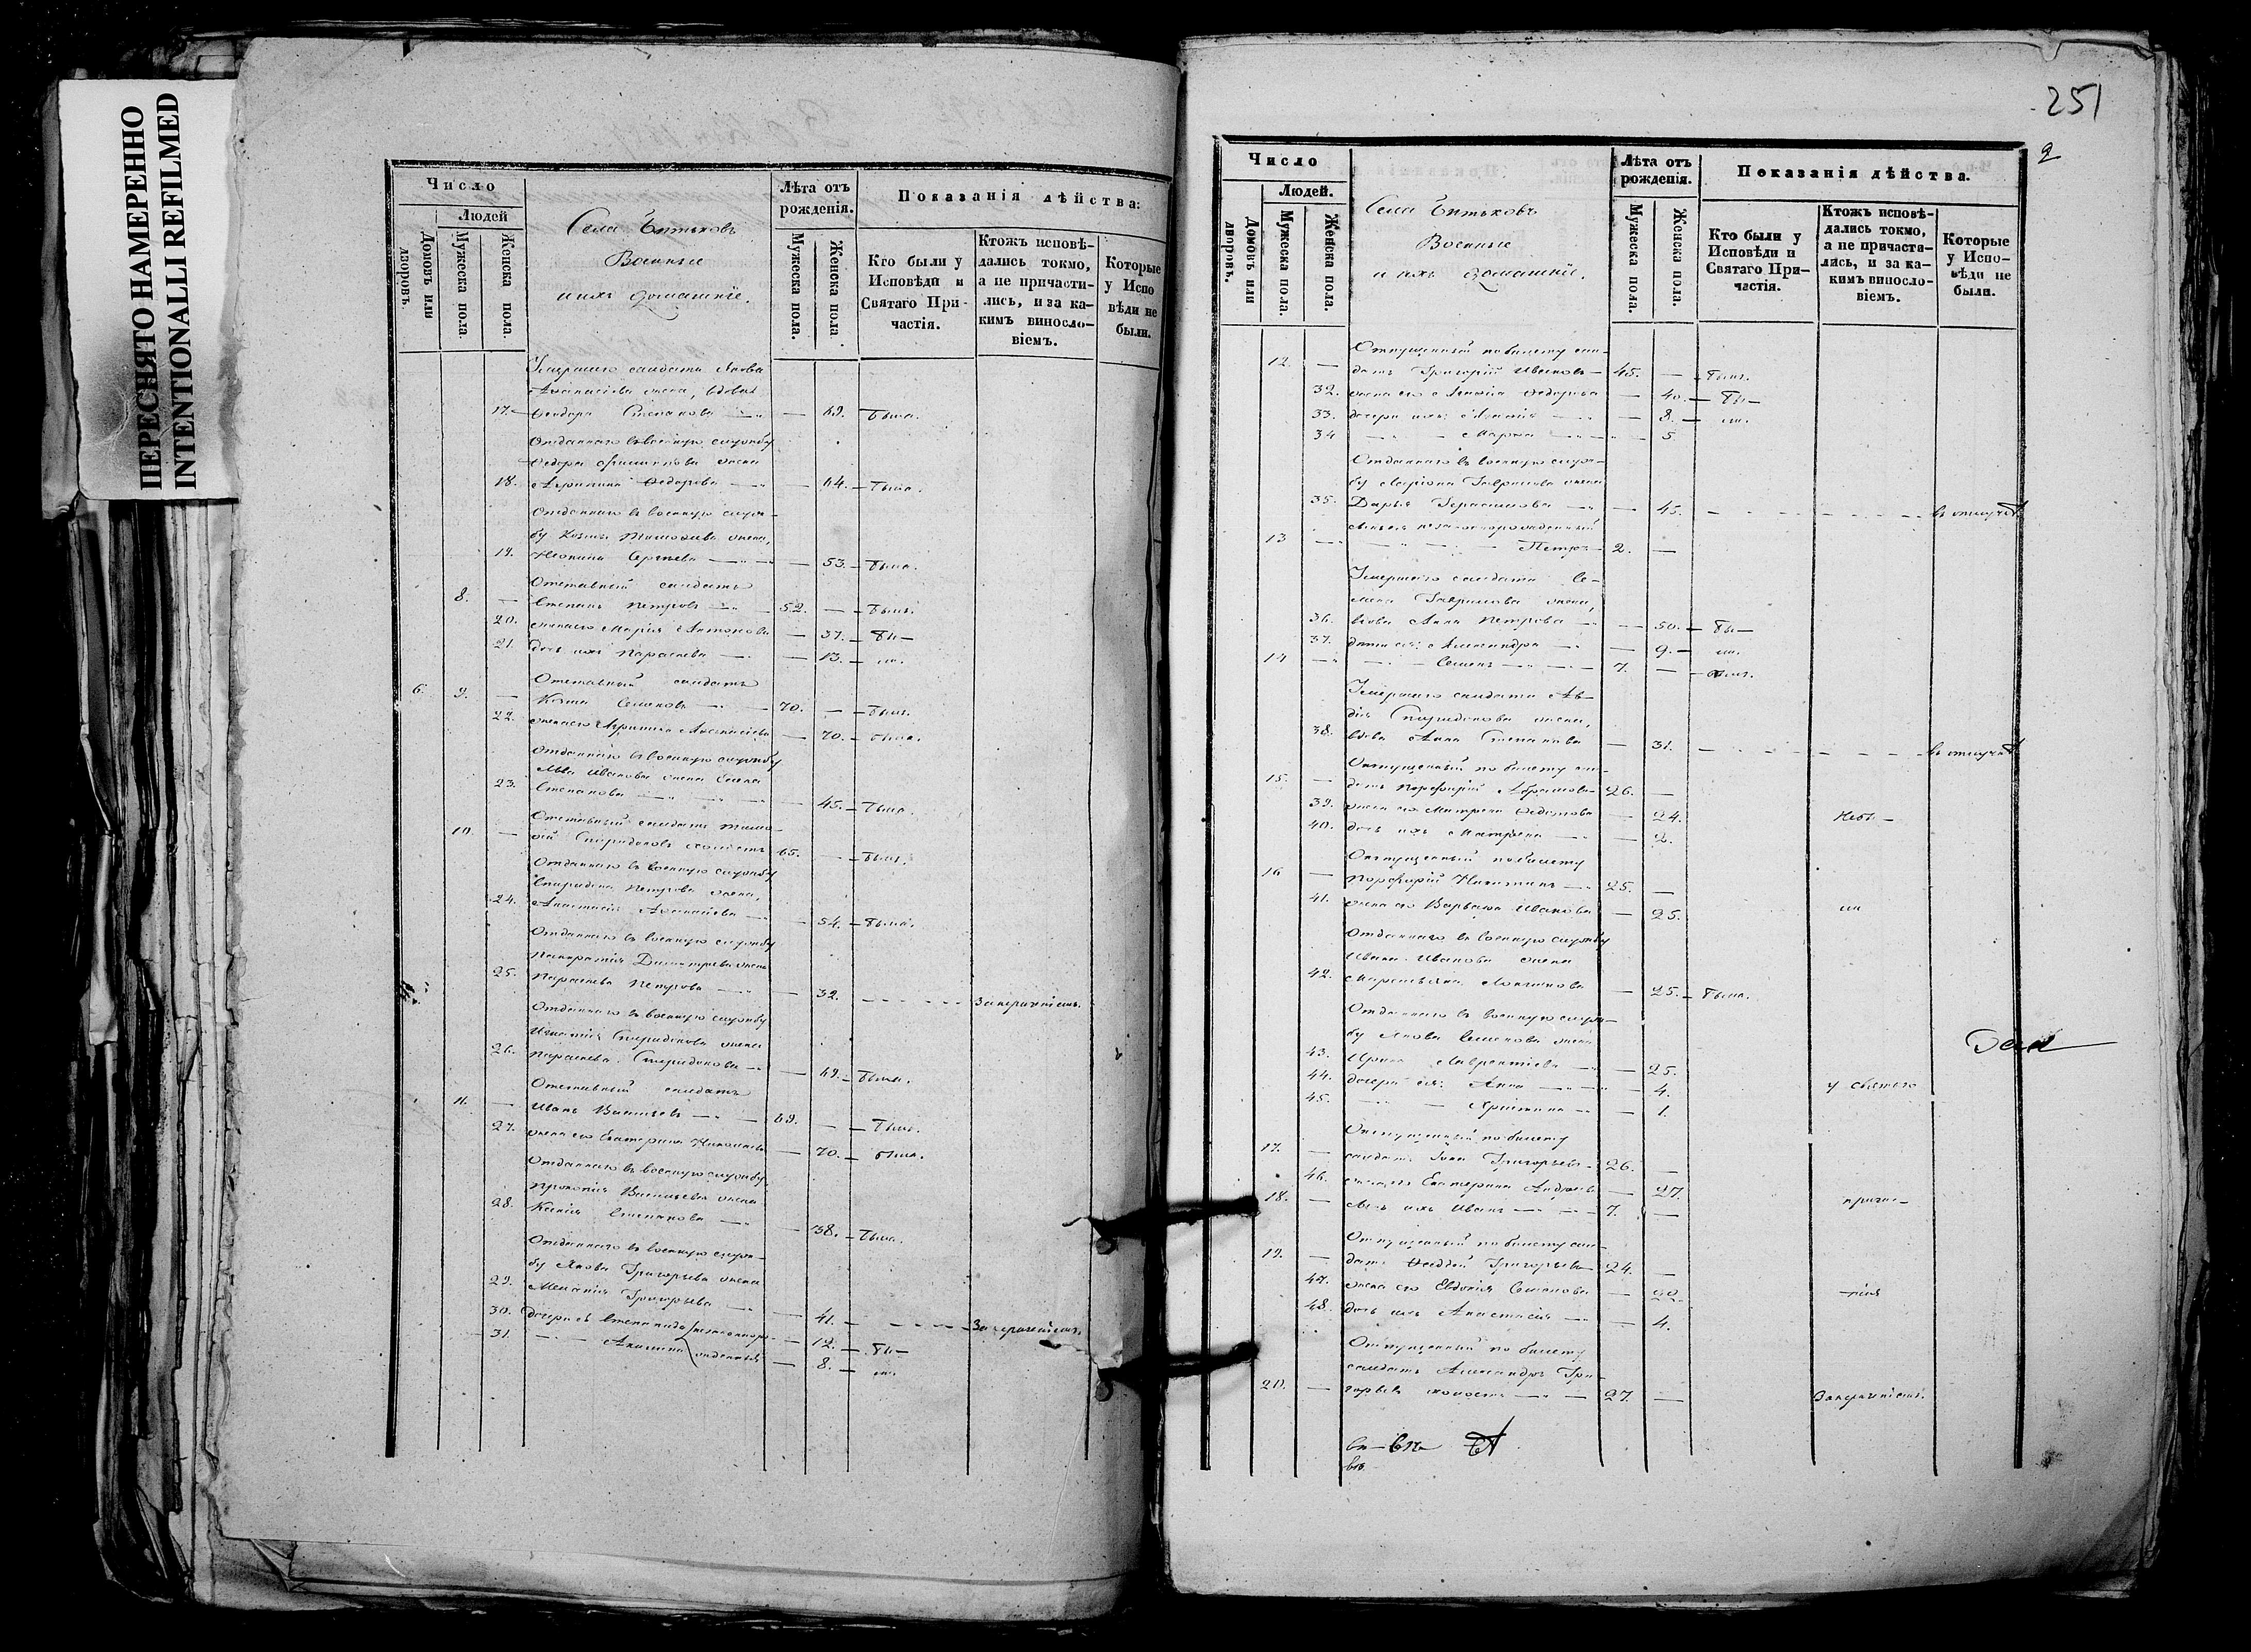 ПЕРЕСНЯТО НАМЕРЕННО
INTENTIONALLI REFILMED
Число
Людей
Домовъ или дворовъ.
Мужеска пола
Женска пола
Села
Военные
и ихъ домашніе.
Лѣта отъ рожденія.
Мужеска пола.
Женска пола
Показанія дѣйства:
Кто были у Исповѣди и Святаго Причастія.
Ктожъ исповѣдались токмо, а не причастились, и за какимъ винословіемъ.
Которые у Исповѣди не были.
Умершаго солдата Якова
жена, вдова
17. Ѳеодора Степанова — 49. была.
Отданнаго въ военную службу
Ѳедора жена
18. Акулина Ѳедорова — 44. была.
Отданнаго въ военную служ-
бу Козмы Тимоѳеева жена,
19. Сергѣева — 53. была.
Отставный солдатъ
8. — Степанъ Петровъ 52. — былъ.
20. жена его Марія Антонова — 37. бы—
21. дочь ихъ Параскева — 13. ли.
Отставный солдатъ
6. 9. — Козма Семеновъ 70. — былъ.
22. жена его Аѳанасіева — 70. была.
Отданнаго въ военную службу
Льва Иванова жена Елена
23. Степанова — 45. была.
Отставный солдатъ Тимо-
10. — ѳей Спиридоновъ холостъ 65. — былъ.
Отданнаго въ военную службу
Спиридона Петрова жена,
24. Анастасія Аѳанасіева — 54. была.
Отданнаго въ военную службу
Панкратія Димитріева жена
25. Параскева Петрова — 32. За нераченіемъ.
Отданнаго въ военную службу
Игнатія Спиридонова жена
26. Параскева Спиридонова — 49. была.
Отставный солдатъ
11. — Иванъ Васильевъ 69. — былъ.
27. жена его Екатерина Николаева — 70. была.
Отданнаго въ военную службу
Прокопія Васильева жена
28. Ксенія Степанова — 38. была.
Отданнаго въ военную служ-
бу Якова Григорьева жена
29. Меланія Григорьева — 41. За нераченіемъ.
30. дочери ея Степанида незаконнорож- — 12. бы—
31. — Акилина денныя — 8. ли.
251
2
Число
Людей.
Домовъ или дворовъ.
Мужеска пола.
Женска пола.
Села
Военные
и ихъ домашніе.
Лѣта отъ рожденія.
Мужеска пола.
Женска пола.
Показанія дѣйства.
Кто были у Исповѣди и Святаго Причастія.
Ктожъ исповѣдались токмо, а не причастились, и за какимъ винословіемъ.
Которые у Исповѣди не были.
Отпущенный по билету сол-
12. — датъ Григорій Ивановъ 45. — былъ.
32. жена его Ѳедорова — 40. бы—
33. дочери ихъ: — 8. ли.
34 — Марѳа — 5
Отданнаго въ военную служ-
бу Гаврилова жена
35. Дарья Герасимова — 45. въ отлучкѣ
сынъ ея незаконнорожденный
13 — Петръ 2. —
Умершаго солдата Се-
мена Гаврилова жена,
36. вдова Анна Петрова — 50. бы—
37. дѣти ея: Александра — 9. ли.
14 — Семенъ 7. — былъ.
Умершаго солдата Ав-
дія Спиридонова жена,
38. вдова Анна Степанова — 31. въ отлучкѣ
Отпущенный по билету сол-
15. — датъ Порфирій Абрамовъ 26. —
39. жена его Матрена — 24. Небы—
40. дочь ихъ Матрена — 2.
Отпущенный по билету
16 — Порфирій Никитинъ 25. —
41. жена его Варвара Иванова — 25. ли
Отданнаго въ военную службу
Ивана Иванова жена
42. — 25. была.
Отданнаго въ военную служ-
бу Якова Семенова жена
43. Ирина Лаврентіева — 25.
44. дочери ея: Анна — 4. у святаго
45. — Христина — 1.
Отпущенный по билету
17. — солдатъ Григорьевъ 26. —
46. жена его Екатерина Андреева — 27. прича—
18. — сынъ ихъ Иванъ 7. —
Отпущенный по билету сол-
19. — датъ Ѳаддей Григорьевъ 24. —
47. жена его Евдокія Семенова — 22. —тія
48. дочь ихъ Анастасія — 4.
Отпущенный по билету
солдатъ Александръ Гри-
20. — горьевъ холостъ 27. — За нераченіемъ.